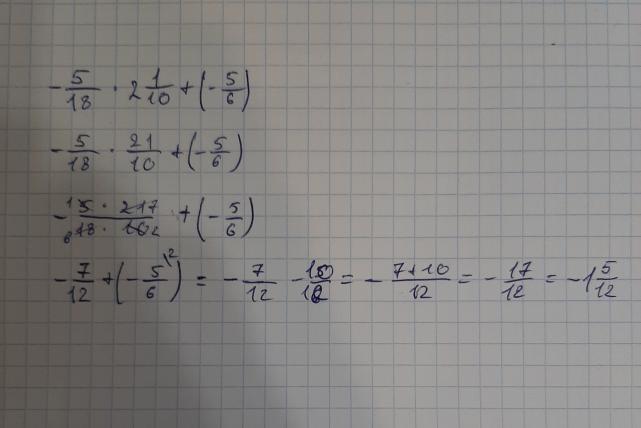 -5/18 · 2 1/10 + (-5/6)
-5/18 · 21/10 + (-5/6)
-¹5 · 21 7/₆18 · 10 ₂ + (-5/6)
-7/12 + (-5/6 \²) = -7/12 - 10/12 = -(7+10)/12 = -17/12 = -1 5/12